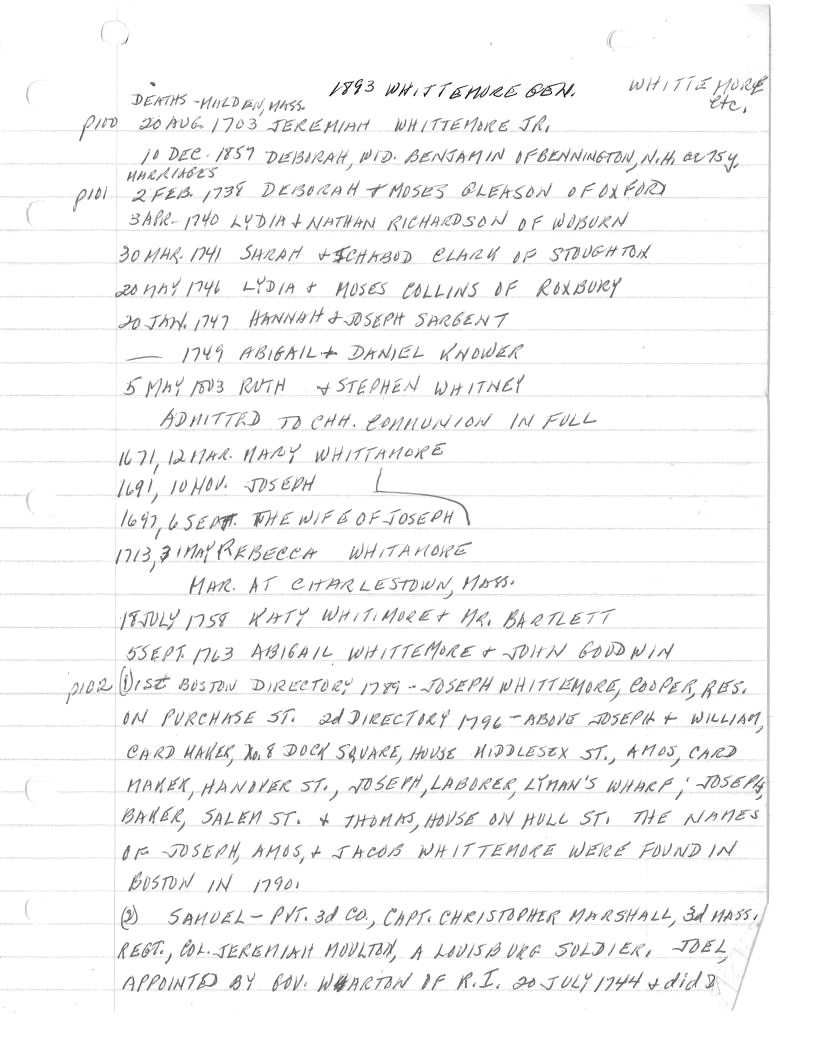 1893 WHITTEMORE GEN. WHITTEMORE
etc.
DEATHS - MALDEN, MASS.
p100 20 AUG. 1703 JEREMIAH WHITTEMORE JR.
10 DEC. 1857 DEBORAH, WID. BENJAMIN OF BENNINGTON, N.H. ae 75 y.
MARRIAGES
p101 2 FEB. 1738 DEBORAH + MOSES GLEASON OF OXFORD
3 APR - 1740 LYDIA + NATHAN RICHARDSON OF WOBURN
30 MAR. 1741 SARAH + ICHABOD CLARK OF STOUGHTON
20 MAY 1746 LYDIA + MOSES COLLINS OF ROXBURY
20 JAN. 1747 HANNAH + JOSEPH SARGENT
— 1749 ABIGAIL + DANIEL KNOWER
5 MAY 1803 RUTH + STEPHEN WHITNEY
ADMITTED TO CHH. COMMUNION IN FULL
1671, 12 MAR. MARY WHITTAMORE
1691, 10 NOV. JOSEPH
1697, 6 SEPT. THE WIFE OF JOSEPH
1713, 31 MAY REBECCA WHITAMORE
MAR. AT CHARLESTOWN, MASS.
18 JULY 1758 KATY WHITIMORE + MR. BARTLETT
5 SEPT. 1763 ABIGAIL WHITTEMORE + JOHN GOODWIN
p102 (1) 1st BOSTON DIRECTORY 1789 - JOSEPH WHITTEMORE, COOPER, RES.
ON PURCHASE ST. 2d DIRECTORY 1796 - ABOVE JOSEPH + WILLIAM,
CARD MAKER, No. 8 DOCK SQUARE, HOUSE MIDDLESEX ST., AMOS, CARD
MAKER, HANOVER ST., JOSEPH, LABORER, LYMAN'S WHARF; JOSEPH,
BAKER, SALEM ST. + THOMAS, HOUSE ON HULL ST. THE NAMES
OF JOSEPH, AMOS, + JACOB WHITTEMORE WERE FOUND IN
BOSTON IN 1790.
(2) SAMUEL - PVT. 3d CO., CAPT. CHRISTOPHER MARSHALL, 3d MASS.
REGT., COL. JEREMIAH MOULTON, A LOUISBURG SOLDIER. JOEL,
APPOINTED BY GOV. WHARTON OF R.I. 20 JULY 1744 + did